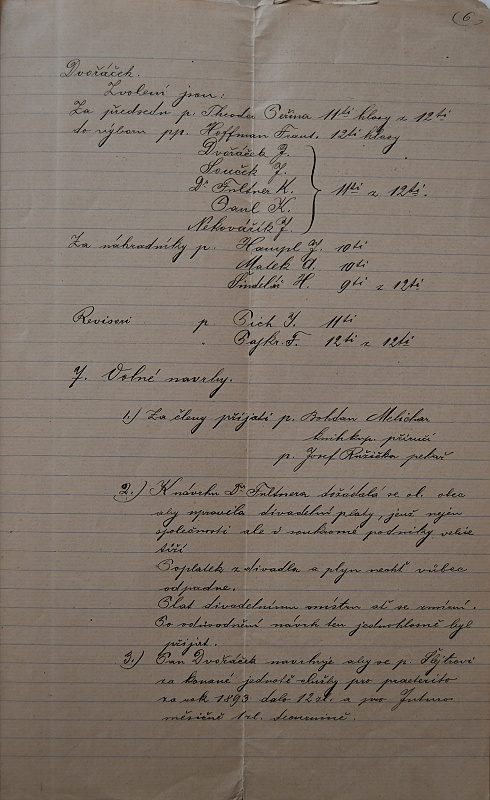 (6
Dvořáček.
Zvoleni jsou:
Za předsedu p. Theodor Peřina 11ti hlasy z 12ti
do výboru pp. Hoffman Frant. 12ti hlasy
Dvořáček J.
Souček J.
Dr Feltner K. 11ti z 12ti.
Paul K.
Nekovářík J.
Za náhradníky p. Hampl J. 10ti
Matek A. 10ti
Šindelář H. 9ti z 12ti
Revisoři p. Pich J. 11ti
" Pajkr. F. 12ti z 12ti
7. Volné navrhy.
1.) Za členy přijati p. Bohdan Melichar
knihkup. příručí
p. Josef Růžička pekař
2.) K návrhu Dr Feltnera dožádalá se sl. obec
aby upravila divadelní platy, jenž nejen
společnosti ale i soukromé podniky velice
tíží
Poplatek z divadla a plyn nechť vůbec
odpadne.
Plat divadelnímu mistru ať se zmírní.
Po odůvodnění návrh ten jednohlasně byl
přijat.
3.) Pan Dvořáček navrhuje aby se p.
za konané jednotě služby pro praeterito
za rok 1893 dalo 12 zl. a pro futuro
měsíčně 1 zl.